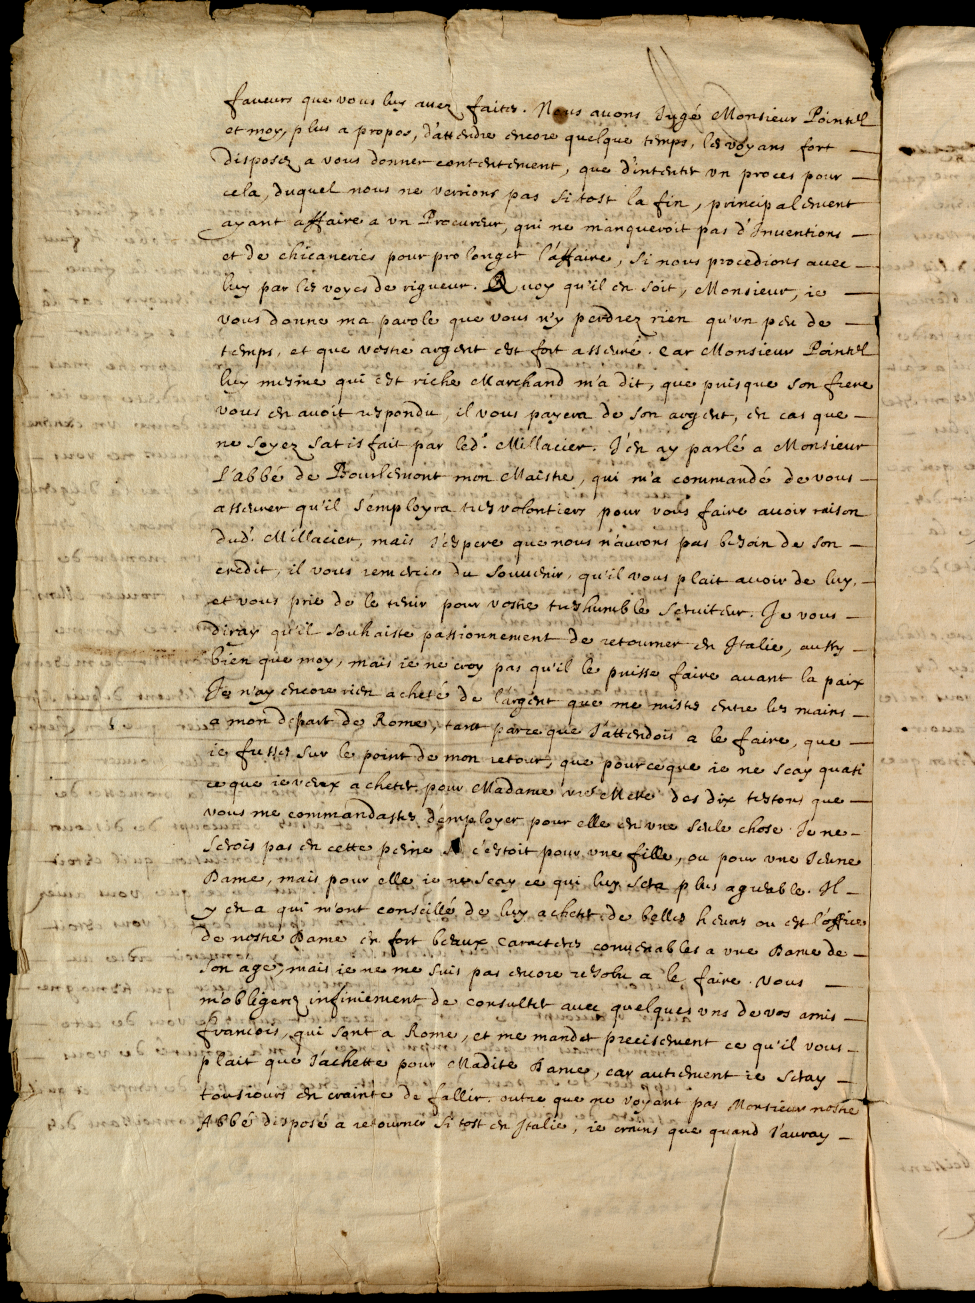 faueurs que vous luy auez faites. Nous auons Jugé Monsieur Pointel
et moy, plus a propos, d'attendre encore quelque temps, les voyans fort —
disposez a vous donner contentement, que d'intenter vn proces pour —
cela, duquel nous ne verrions pas si tost la fin, principalement
ayant affaire a vn Procureur, qui ne manqueroit pas d'Inuentions —
et de chicaneries pour prolonger l'affaire, si nous procedions auec —
luy par les voyes de rigueur. Quoy qu'il en soit, Monsieur, ie —
vous donne ma parole que vous n'y perdrez rien qu'vn peu de —
temps, et que vostre argent est fort asseuré. Car Monsieur Pointel
luy mesme qui est riche Marchand m'a dit, que puisque son frere
vous en auoit respondu, il vous payera de son argent, en cas que —
ne soyez satisfait par led.t Millacier. J'en ay parlé a Monsieur
L'abbé de Bourlemont mon Maistre, qui m'a commandé de vous —
asseurer qu'il s'employra tres volontiers pour vous faire auoir raison
dud.t Millacier, mais J'espere que nous n'aurons pas besoin de son —
credit, il vous remercie du souuenir, qu'il vous plait auoir de luy, —
et vous prie de le tenir pour vostre tres humble seruiteur. Je vous —
diray qu'il souhaiste passionnement de retourner en Italie, aussy —
bien que moy, mais ie ne croy pas qu'il le puisse faire auant la paix
Je n'ay encore rien acheté de l'argent que me mistes entre les mains —
a mon depart de Rome, tant parce que J'attendois a le faire, que —
ie fusse sur le point de mon retour, que pource que ie ne scay quasi
ce que ie veux acheter pour Madame vre Mere des dix testons que —
vous me commandastes d'employer pour elle en vne seule chose. Je ne —
serois pas en cette peine si c'estoit pour vne fille, ou pour vne Jeune
Dame, mais pour elle ie ne scay ce qui luy sera plus agreable. Il —
y en a qui m'ont conseillé de luy acheter de belles heures ou est l'office
de nostre Dame en fort beaux caracteres conuenables a vne Dame de —
son age, mais ie ne me suis pas encore resolu a le faire. Vous —
m'obligerez infiniement de consulter auec quelques vns de vos amis —
francois, qui sont a Rome, et me mander precisement ce qu'il vous —
plait que J'achette pour Madite Dame, car autrement ie seray —
tousiours en crainte de fallir. outre que ne voyant pas Monsieur nostre
Abbé disposé a retourner si tost en Italie, ie crains que quand J'auray —